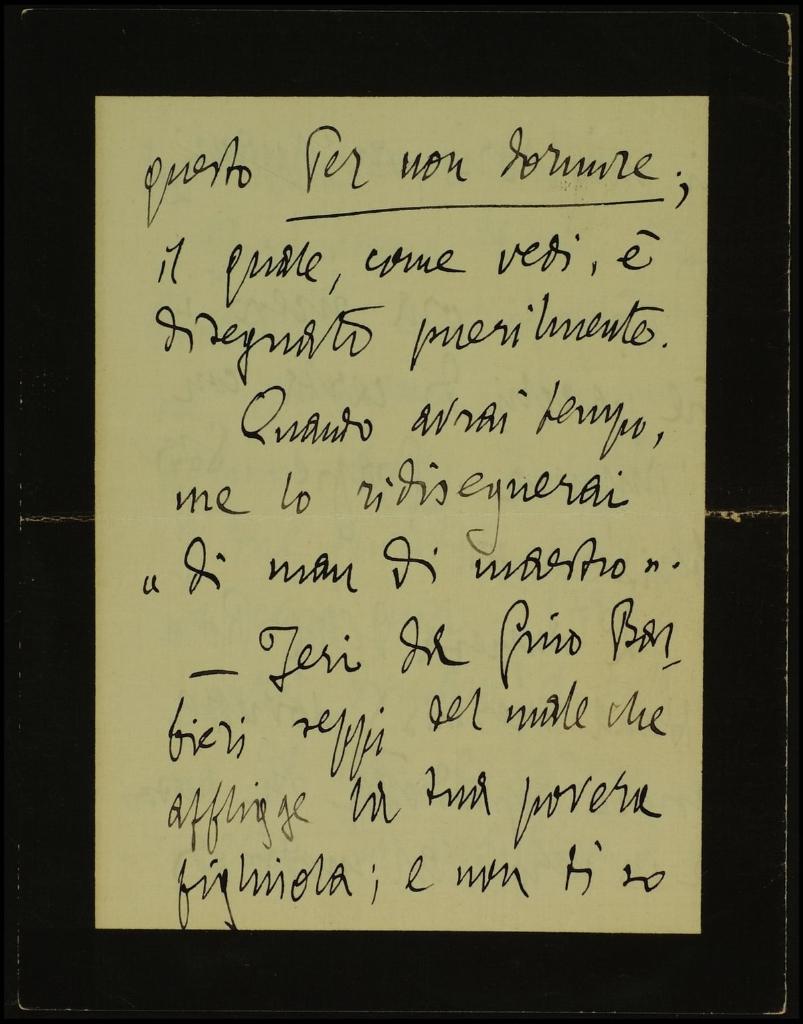 questo Per non dormire;
il quale, come vedi, è
disegnato puerilmente.
Quando avrai tempo,
me lo ridisegnerai
« di man di maestro ».
— Jeri da Gino Bar-
bieri seppi del male che
affligge la tua povera
figliuola; e non ti so